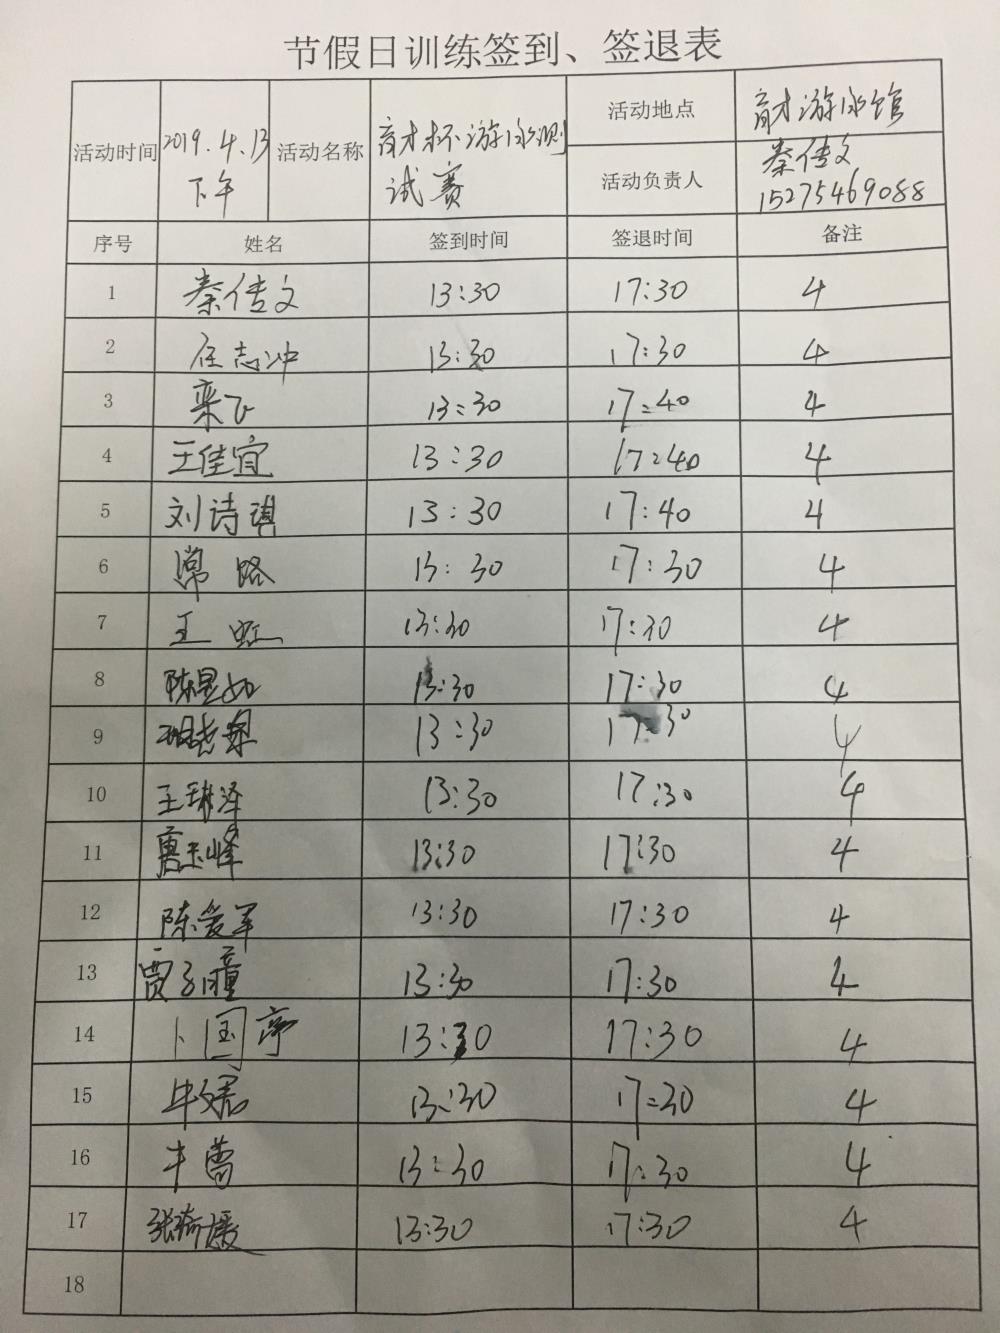 节假日训练签到、签退表
活动时间 2019.4.13 下午 活动名称 育才杯游泳测试赛 活动地点 育才游泳馆
活动负责人 秦传文 15275469088
序号 姓名 签到时间 签退时间 备注
1 秦传文 13:30 17:30 4
2 任志冲 13:30 17:30 4
3 栾飞 13:30 17:40 4
4 王佳宜 13:30 17:40 4
5 刘诗琪 13:30 17:40 4
6 常路 13:30 17:30 4
7 王虹 13:30 17:30 4
8 陈昱如 13:30 17:30 4
9 13:30 17:30 4
10 王琳泽 13:30 17:30 4
11 唐玉峰 13:30 17:30 4
12 陈爱军 13:30 17:30 4
13 贾子瞳 13:30 17:30 4
14 卜国亭 13:30 17:30 4
15 牛文君 13:30 17:30 4
16 牛曹 13:30 17:30 4
17 张琦媛 13:30 17:30 4
18